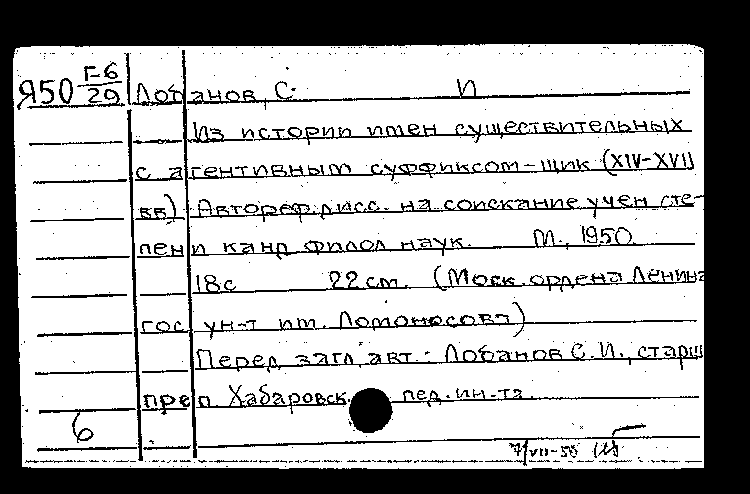 Я50 Г-6/29 Лобанов, С. И
Из истории имен существительных
с агентивным суффиксом -щик (XIV-XVII
вв) Автореф.дисс. на соискание учен сте-
пени канд филол наук. М., 1950.
18с 22 см. (Моск. ордена Ленина
гос ун-т им. Ломоносова)
Перед загл. авт.: Лобанов С.И., старш
преп Хабаровск. пед. ин-та.
6
7/VII-50